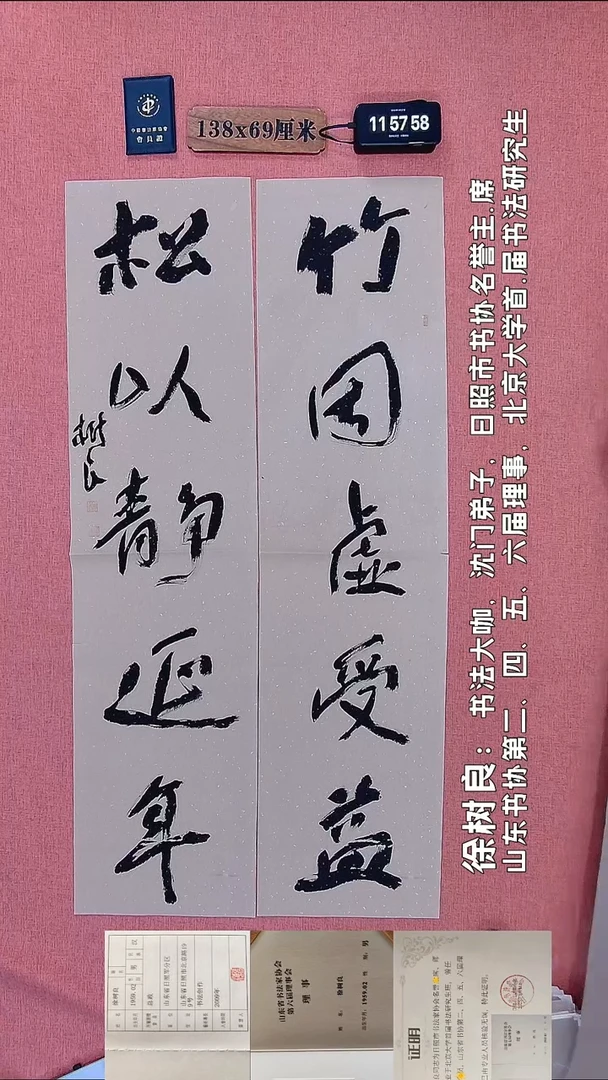 中国书法家协会
會員證
138x69厘米
11 57 58
竹因虚受益
松以静延年
树良
徐树良：书法大咖，沈门弟子，日照市书协名誉主.席
山东书协第二、四、五、六届理事，北京大学首.届书法研究生
徐树良
1959.02
男
汉
书法创作
2009年
山东省书法家协会
第六届理事会
理事
徐树良
男
1959.02
证明